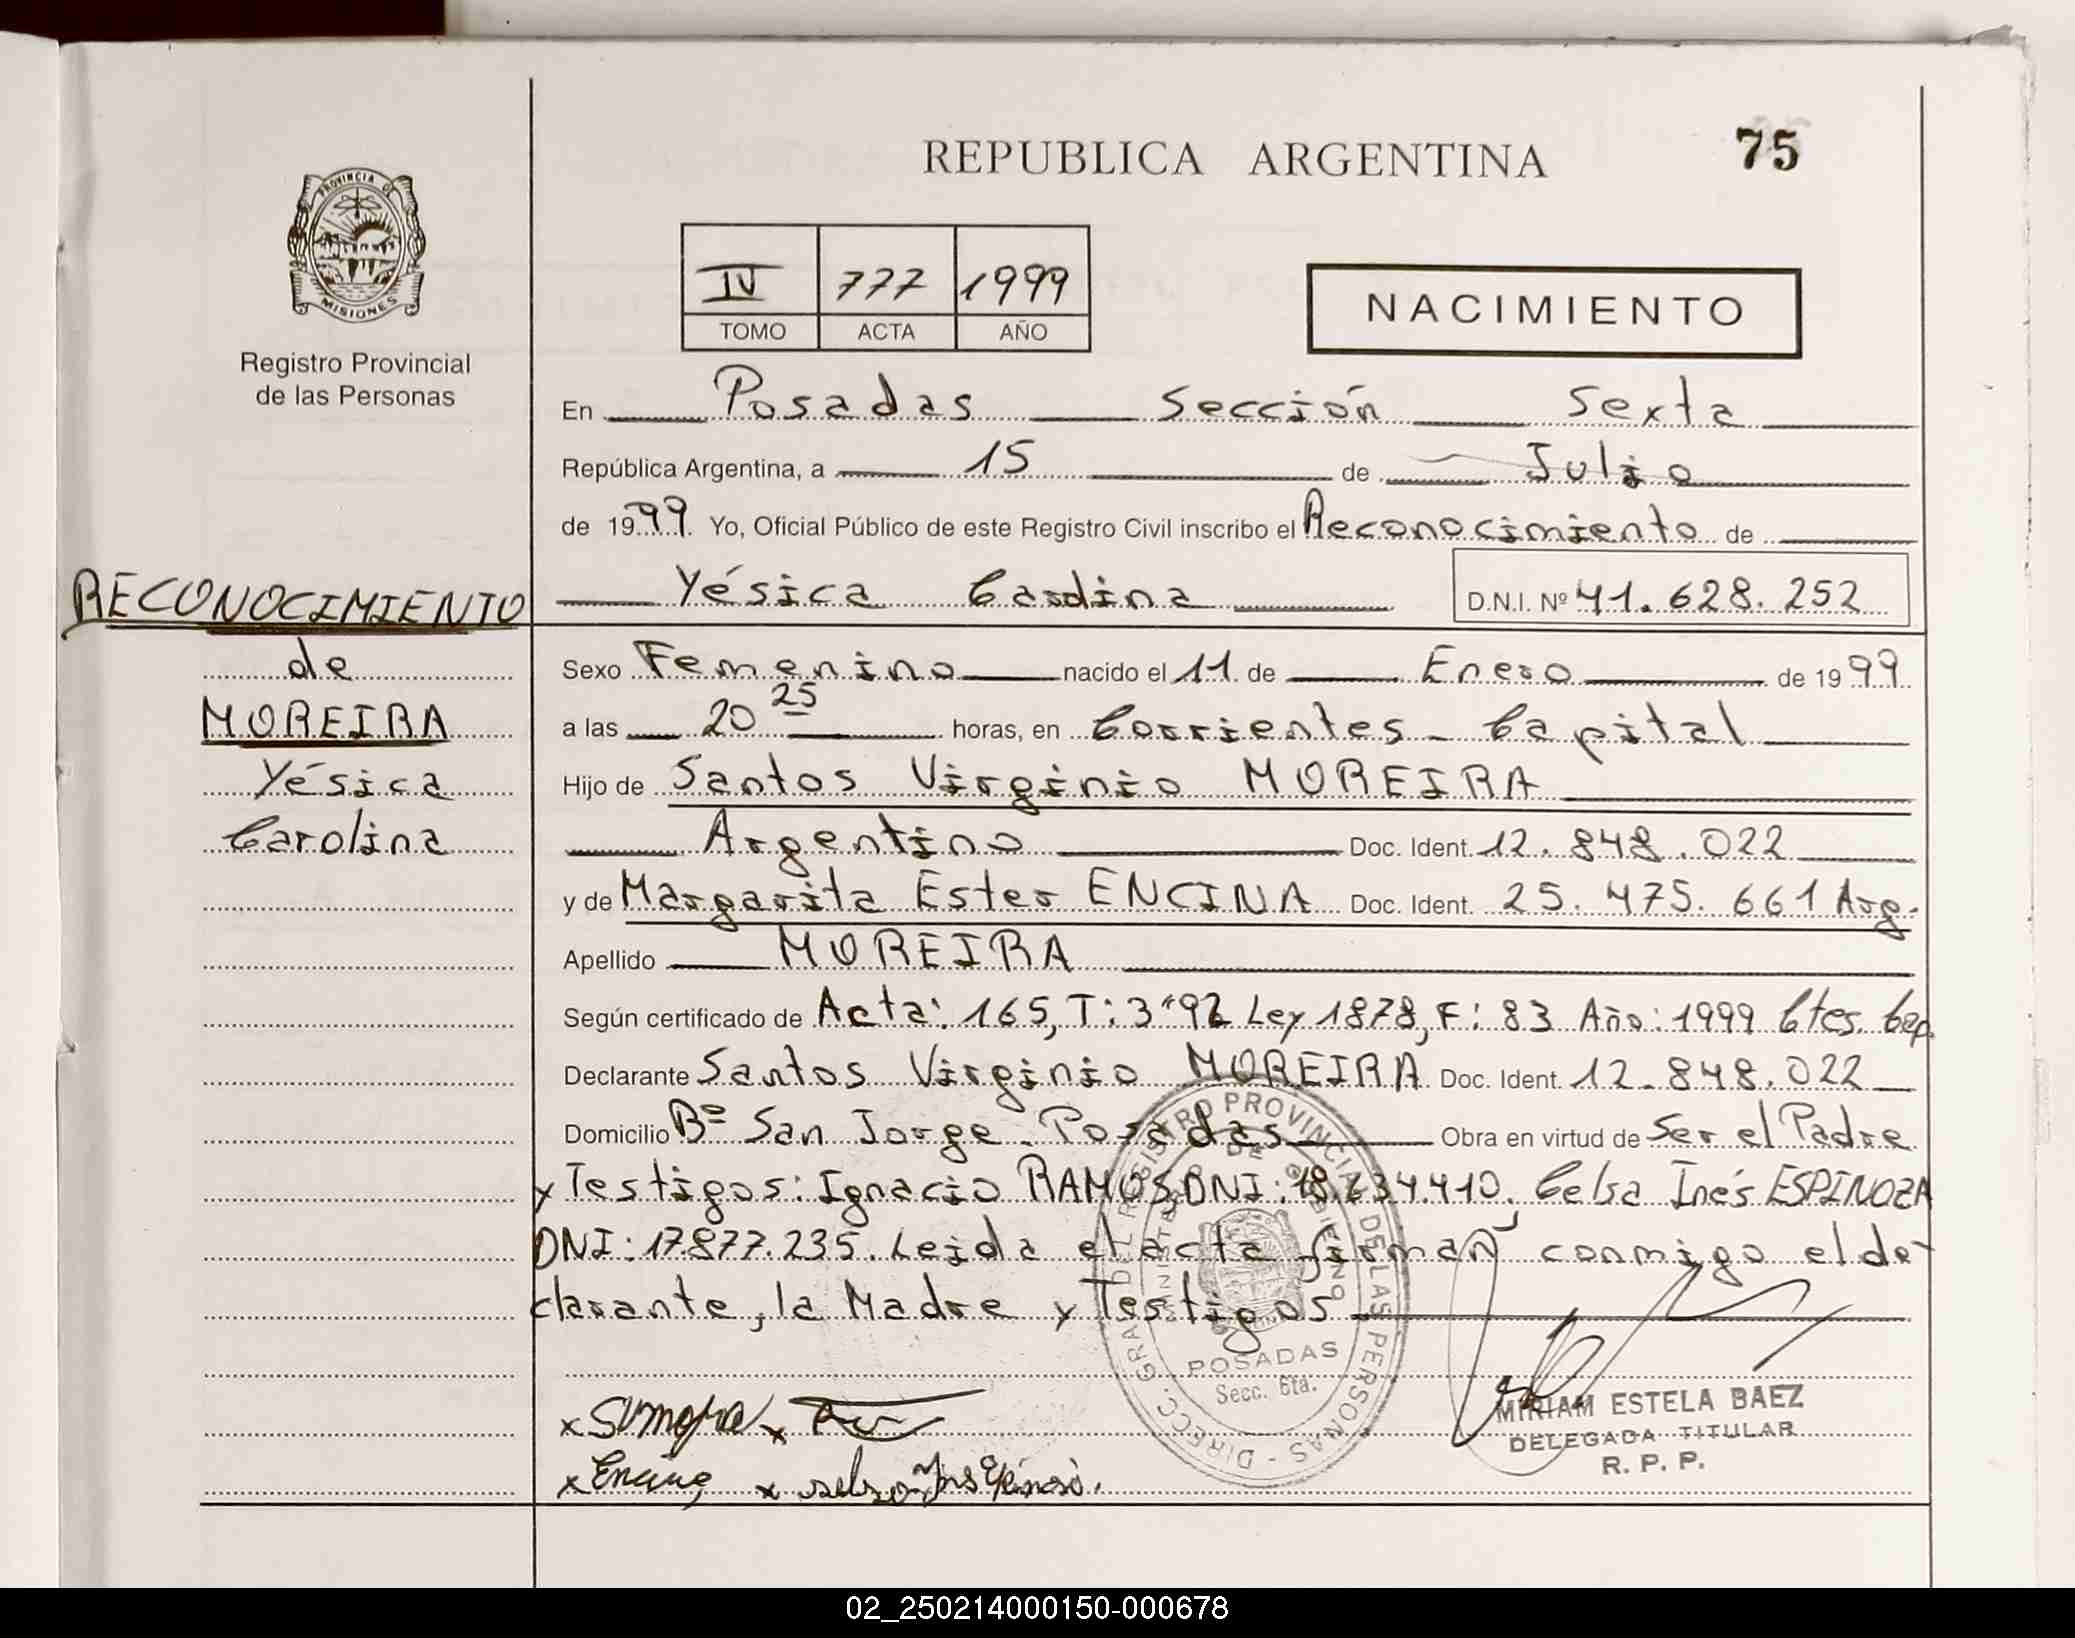 REPUBLICA ARGENTINA
75
PROVINCIA DE
MISIONES
Registro Provincial
de las Personas
IV 777 1999
TOMO ACTA AÑO
NACIMIENTO
En Posadas Sección Sexta
República Argentina, a 15 de Julio
de 1999. Yo, Oficial Público de este Registro Civil inscribo el Reconocimiento de
Yésica Carolina D.N.I. Nº 41.628.252
RECONOCIMIENTO
de
MOREIRA
Yésica
Carolina
Sexo Femenino nacido el 11 de Enero de 1999
a las 20 25 horas, en Corrientes - Capital
Hijo de Santos Virginio MOREIRA
Argentino Doc. Ident. 12.848.022
y de Margarita Ester ENCINA Doc. Ident. 25.475.661 Arg.
Apellido MOREIRA
Según certificado de Acta: 165, T: 3º92 Ley 1878, F: 83 Año: 1999 Ctes. Cap.
Declarante Santos Virginio MOREIRA Doc. Ident. 12.848.022
Domicilio Bº San Jorge - Posadas Obra en virtud de Ser el Padre
y Testigos: Ignacio RAMOS DNI: 18.234.410, Celsa Inés ESPINOZA
DNI: 17.877.235. Leida el acta firman conmigo el de-
clarante, la Madre y Testigos
DIRECC. GRAL. DEL REGISTRO PROVINCIAL DE LAS PERSONAS
MINISTERIO DE GOBIERNO
POSADAS
Secc. 6ta.
x x
x Encina x
MIRIAM ESTELA BAEZ
DELEGADA TITULAR
R. P. P.
02_250214000150-000678